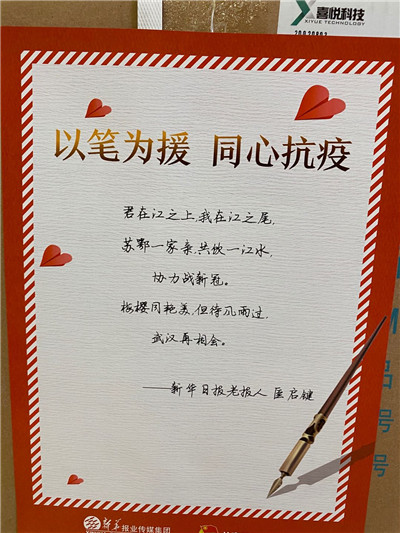 喜悦科技
XIYUE TECHNOLOGY
以笔为援 同心抗疫
君在江之上,我在江之尾,
苏鄂一家亲,共饮一江水,
协力战新冠。
梅樱同艳美,但待风雨过,
武汉再相会。
——新华日报老报人 匡启键
新华报业传媒集团
品
号
号